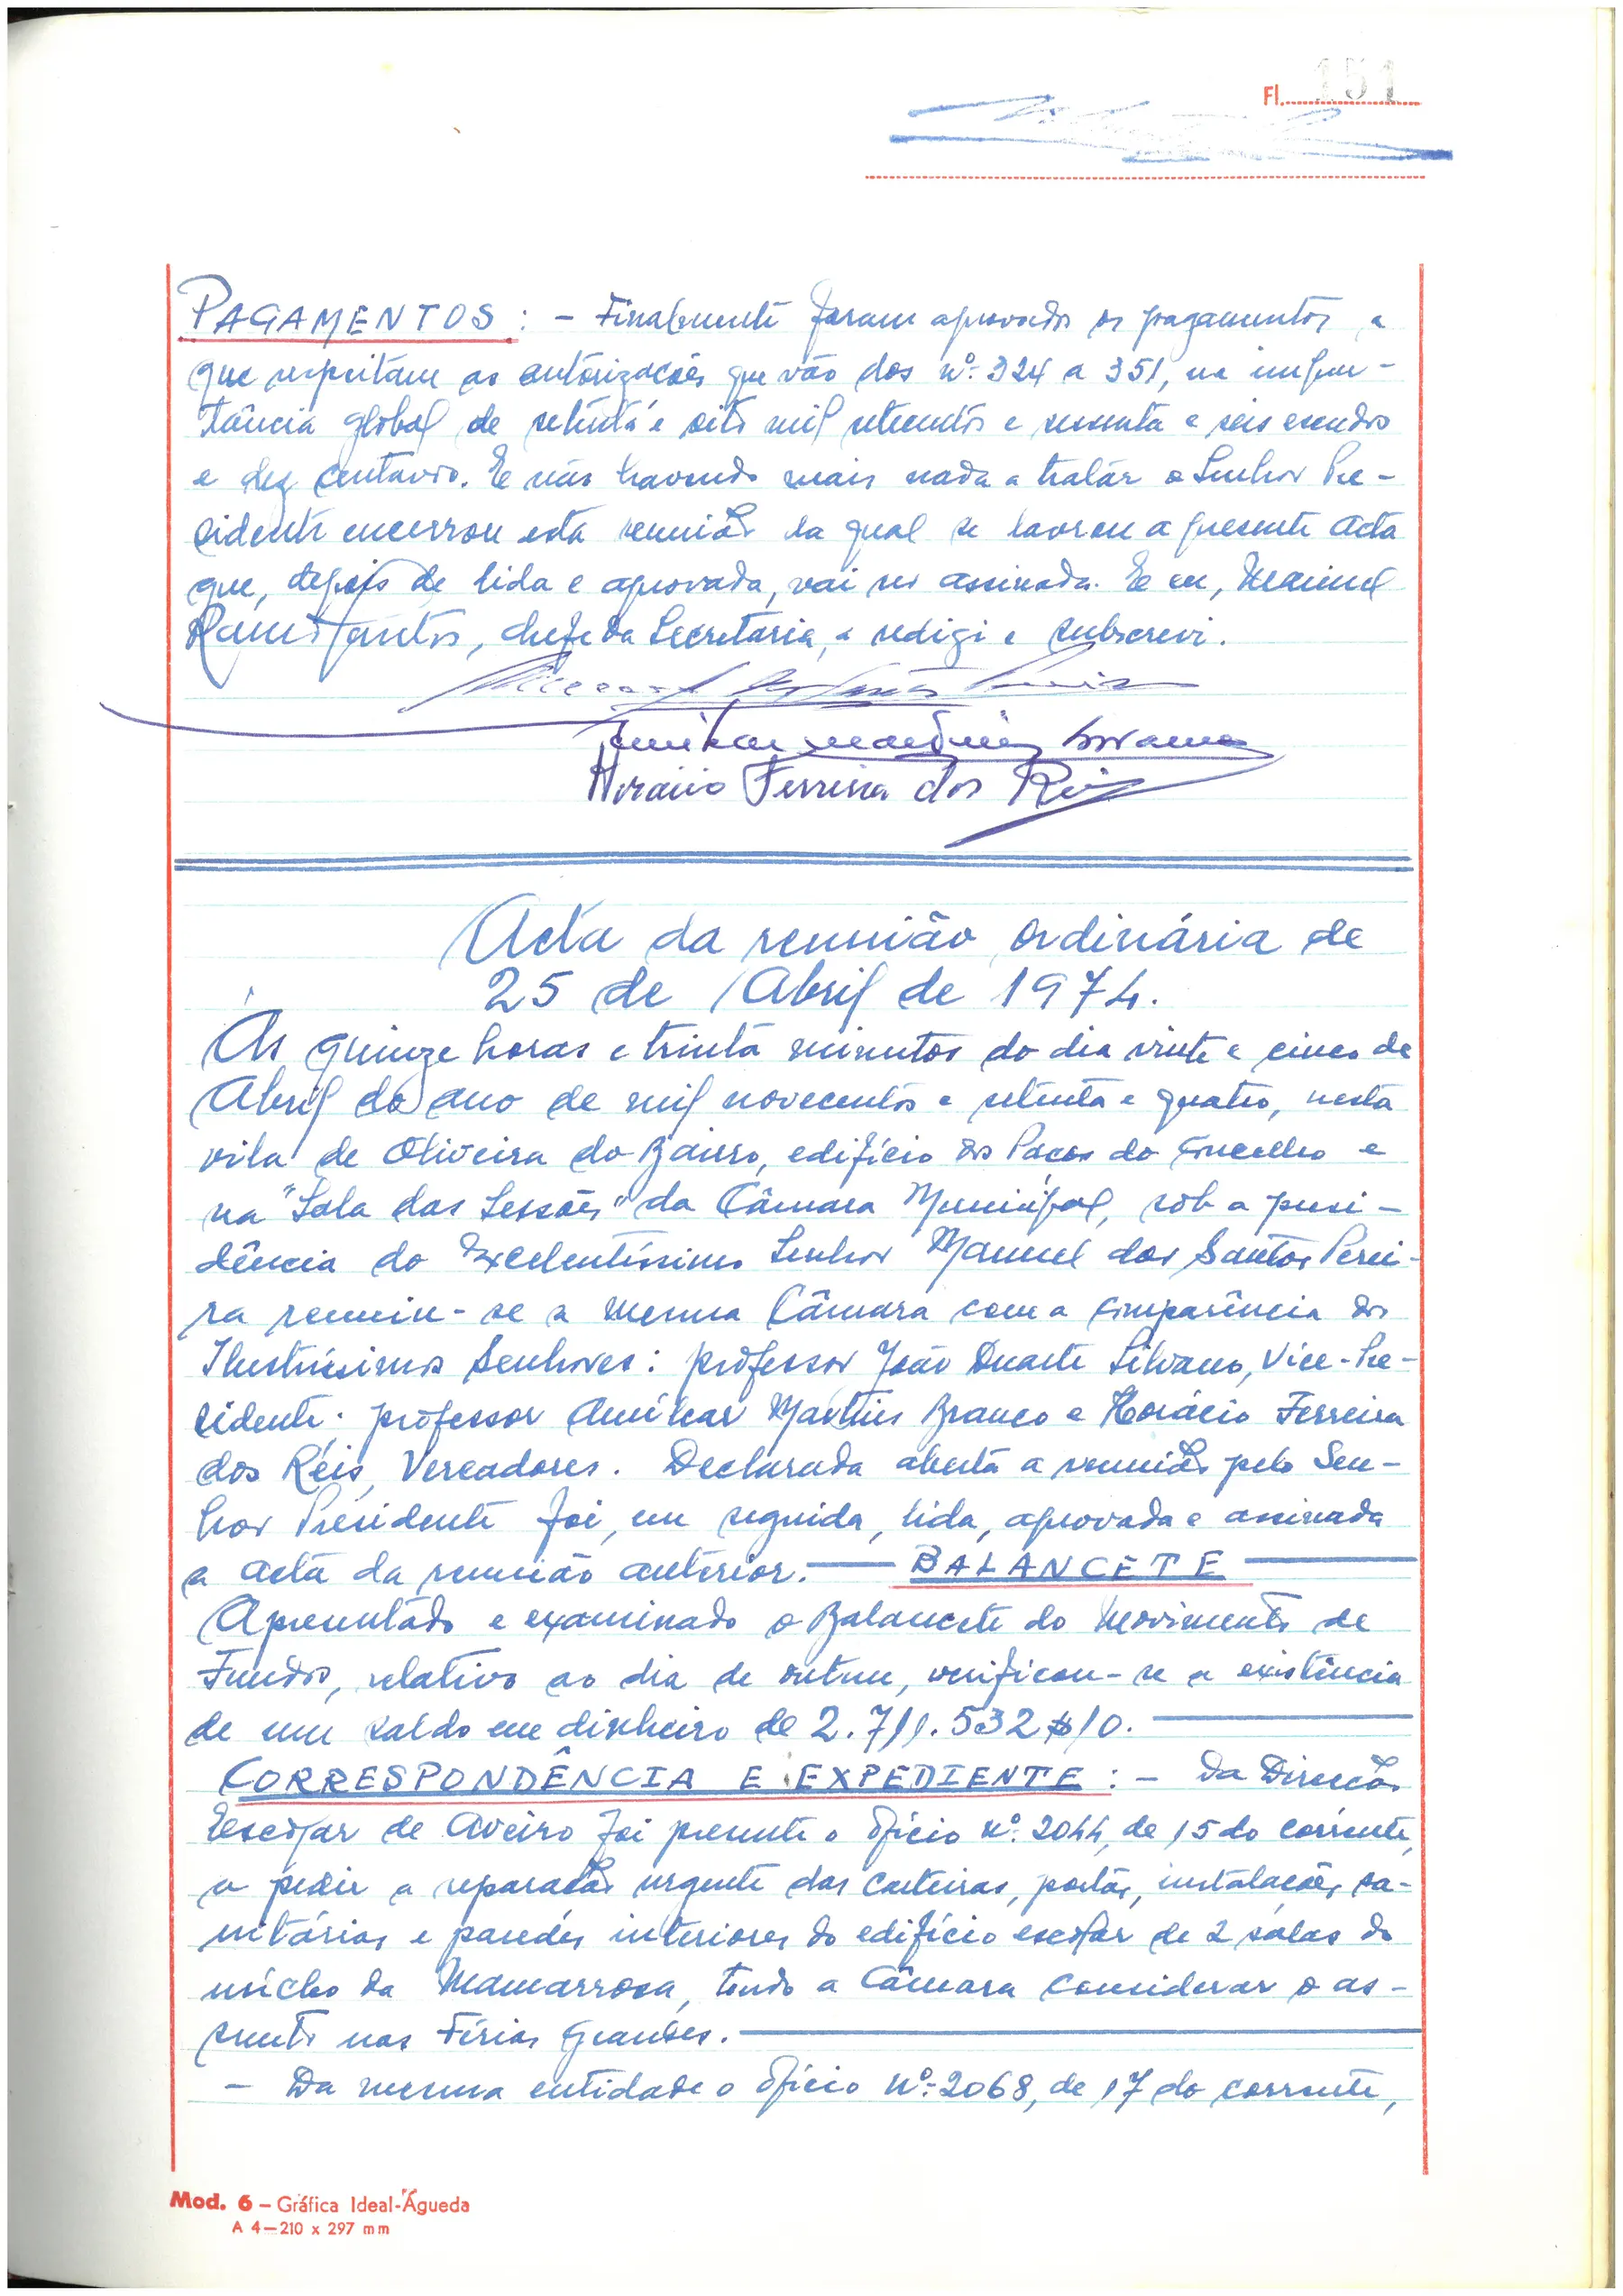 Fl. 151
PAGAMENTOS: - Finalmente foram aprovados os pagamentos a
que respeitam as autorizações que vão dos nº. 324 a 351, na impor-
tância global de setenta e oito mil setecentos e sessenta e seis escudos
e dez centavos. E não havendo mais nada a tratar o Senhor Pre-
sidente encerrou esta reunião da qual se lavrou a presente acta
que, depois de lida e aprovada, vai ser assinada. E eu, Manuel
Santos, chefe da Secretaria, a redigi e subscrevi.
Amilcar Martins Branco
Horácio Ferreira dos Reis
Acta da reunião ordinária de
25 de Abril de 1974.
Às quinze horas e trinta minutos do dia vinte e cinco de
Abril do ano de mil novecentos e setenta e quatro, nesta
vila de Oliveira do Bairro, edifício dos Paços do Concelho e
na "Sala das Sessões" da Câmara Municipal, sob a presi-
dência do Excelentíssimo Senhor Manuel dos Santos Perei-
ra reuniu-se a mesma Câmara com a comparência dos
Ilustríssimos Senhores: professor João Duarte Silvano, Vice-Pre-
sidente; professor Amílcar Martins Branco e Horácio Ferreira
dos Reis, Vereadores. Declarada aberta a reunião pelo Sen-
hor Presidente foi, em seguida, lida, aprovada e assinada
a acta da reunião anterior. — BALANCETE —
Apresentado e examinado o Balancete do Movimento de
Fundos, relativo ao dia de ontem, verificou-se a existência
de um saldo em dinheiro de 2.711.532$10. —
CORRESPONDÊNCIA E EXPEDIENTE: - Da Direcção
Escolar de Aveiro foi presente o ofício nº. 2044, de 15 do corrente,
a pedir a reparação urgente das carteiras, portas, instalações sa-
nitárias e paredes interiores do edifício escolar de 2 salas do
núcleo da Mamarrosa, tendo a Câmara considerar o as-
sunto nas Férias Grandes. —
- Da mesma entidade o ofício nº. 2068, de 17 do corrente,
Mod. 6 – Gráfica Ideal-Águeda
A 4—210 x 297 mm